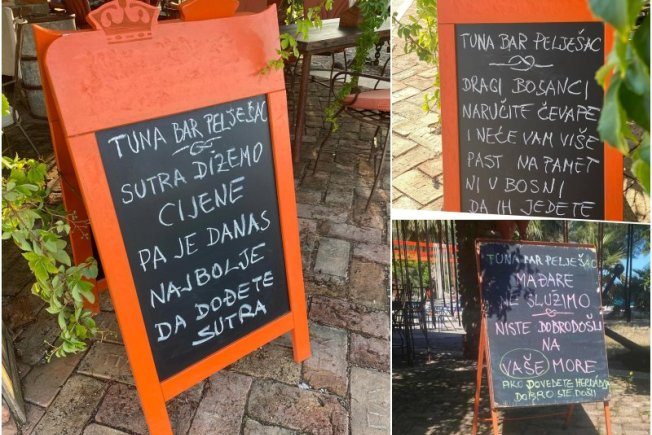 TUNA BAR PELJEŠAC
SUTRA DIŽEMO
CIJENE
PA JE DANAS
NAJBOLJE
DA DOĐETE
SUTRA
TUNA BAR PELJEŠAC
DRAGI BOSANCI
NARUČITE ČEVAPE
I NEĆE VAM VIŠE
PAST NA PAMET
NI U BOSNI
DA IH JEDETE
TUNA BAR PELJEŠAC
MAĐARE
NE SLUŽIMO
NISTE DOBRODOŠLI
NA
VAŠE MORE
AKO DOVEDETE
DOBRO STE DOŠLI